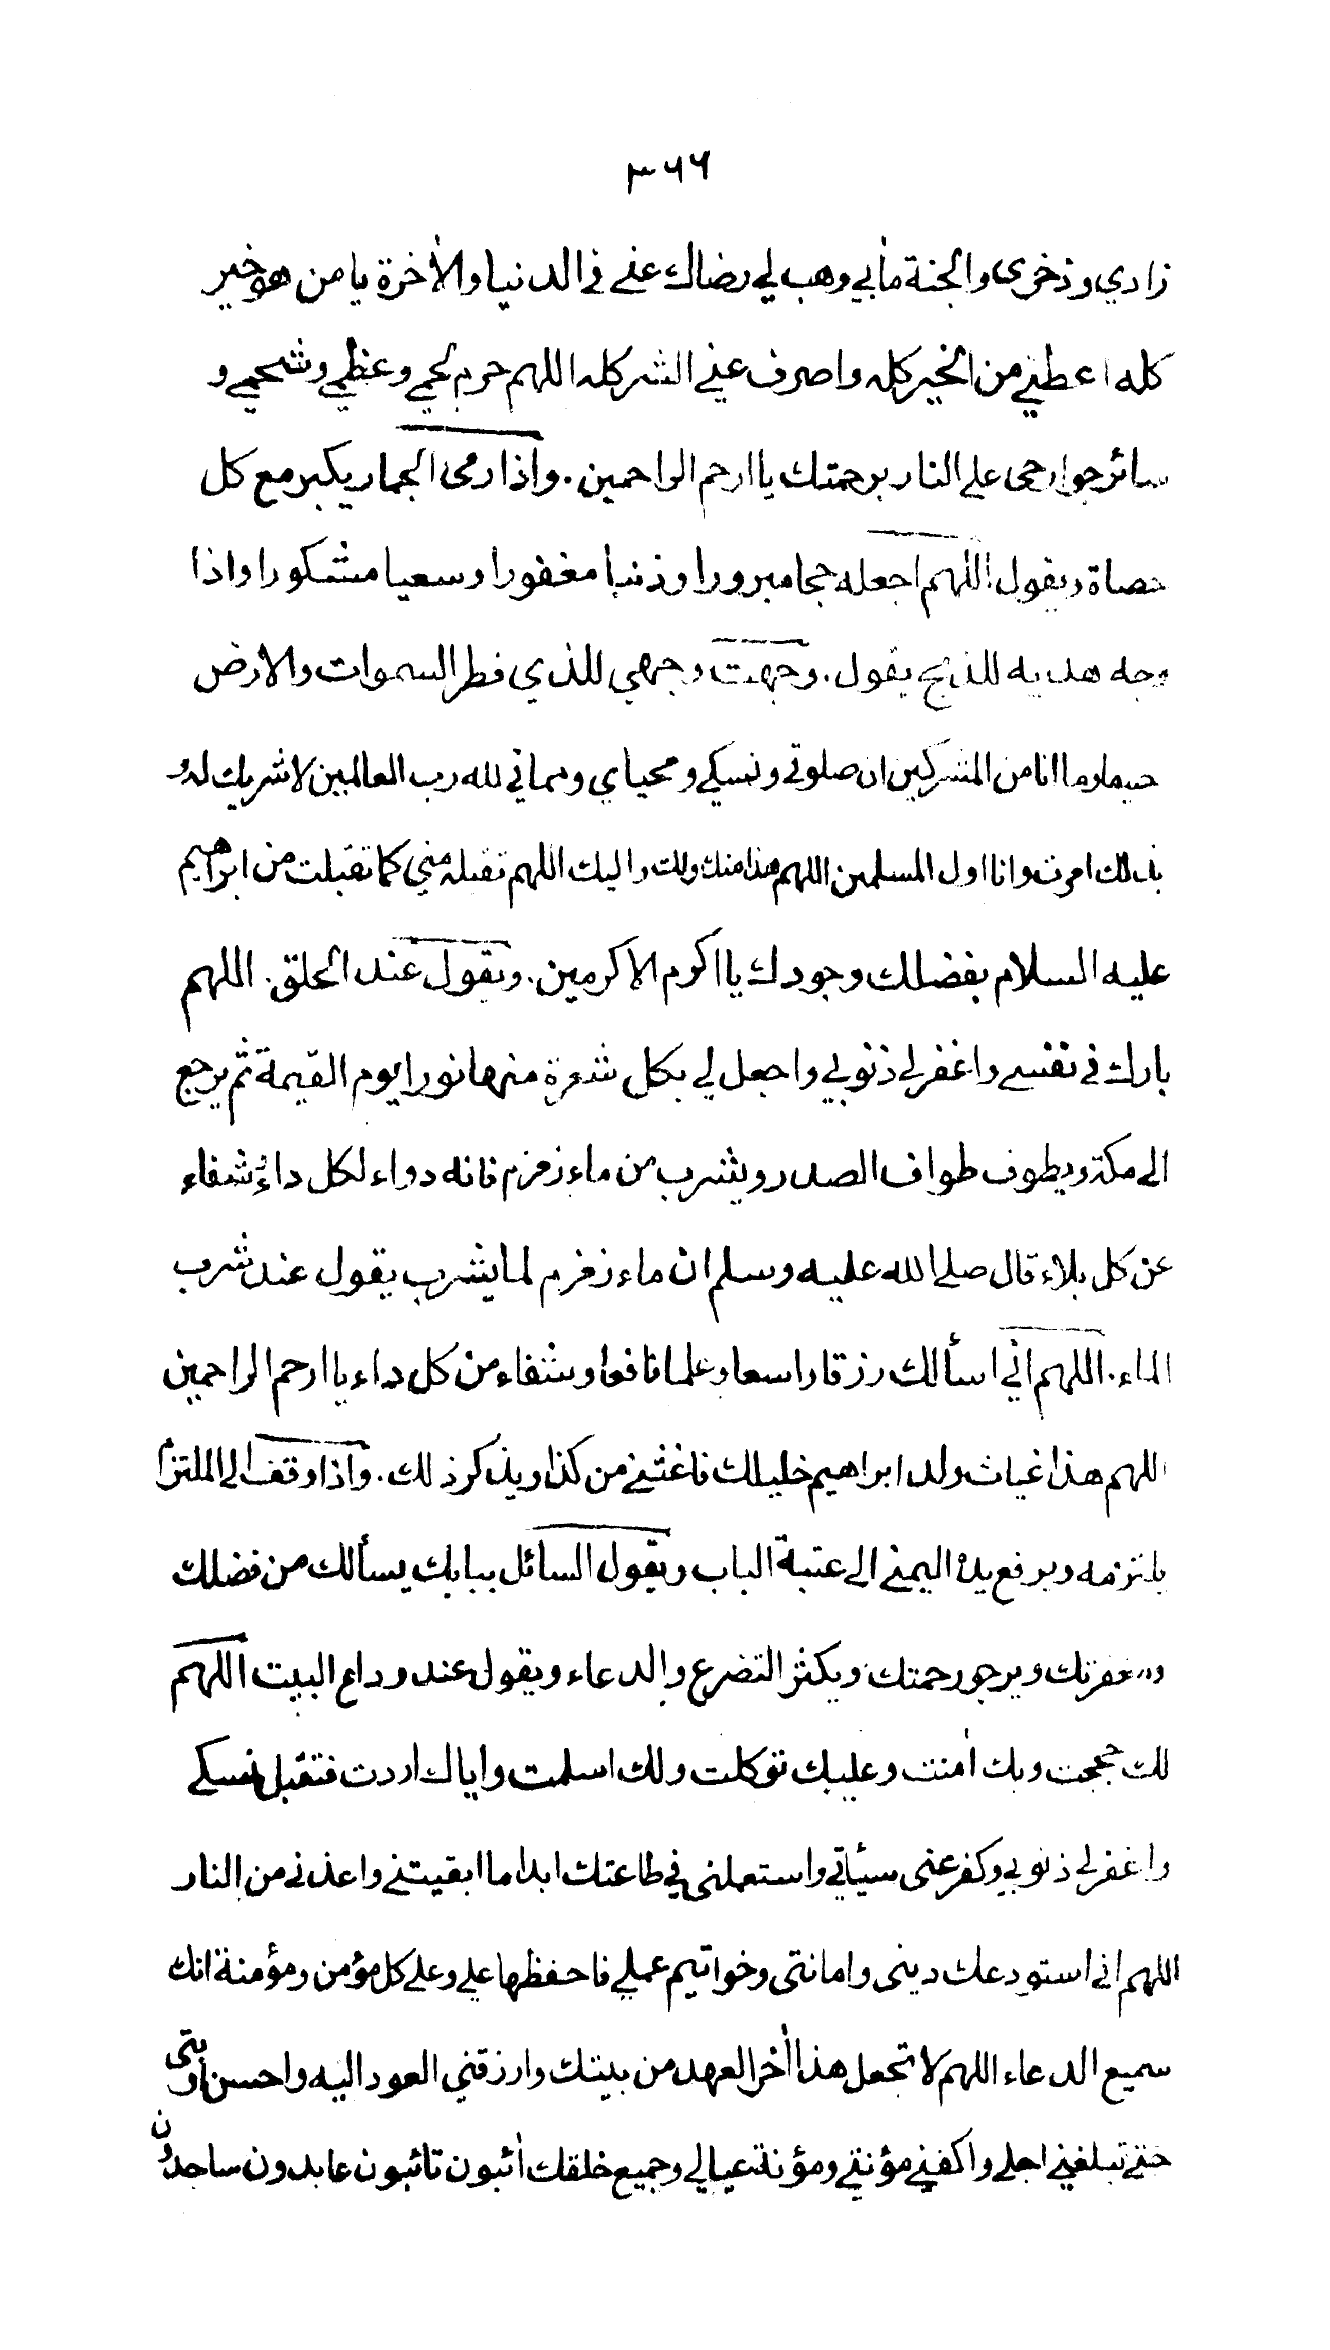 ٣٦٦
زادي وذخرى والجنة مأبي وهب لي رضاك عني في الدنيا والأخرة يا من هو خير
كله اعطني من الخير كله واصرف عني الشر كله اللهم حرم لحمي وعظمي وشحمي و
سائر جوارحى على النار برحمتك يا ارحم الراحمين. واذا رمى الجمار يكبر مع كل
حصاة ويقول اللهم اجعله حجا مبرورا وذنبا مغفورا وسعيا مشكورا واذا
وجه هديه للذبح يقول. وجهت وجهي للذي فطر السموات والارض
وما انا من المشركين ان صلوتي ونسكي ومحياي ومماتي لله رب العالمين لا شريك له و
بذلك امرت وانا اول المسلمين اللهم هذا منك ولك واليك اللهم تقبله مني كما تقبلت من ابراهيم
عليه السلام بفضلك وجودك يا اكرم الاكرمين. ويقول عند الحلق. اللهم
بارك في نفسي واغفر لي ذنوبي واجعل لي بكل شعرة منها نورا يوم القيمة ثم يرجع
الى مكة ويطوف طواف الصدر ويشرب من ماء زمزم فانه دواء لكل داء وشفاء
عن كل بلاء قال صلى الله عليه وسلم ان ماء زمزم لما يشرب يقول عند شرب
الماء. اللهم اني اسألك رزقا واسعا وعلما نافعا وشفاء من كل داء يا ارحم الراحمين
اللهم هذا غياث ولد ابراهيم خليلك فاغثني من كذا ويذكر ذلك. واذا وقف الى الملتزم
يلتزمه ويرفع يده اليمنى الى عتبة الباب ويقول السائل ببابك يسألك من فضلك
ومغفرتك ويرجو رحمتك ويكثر التضرع والدعاء ويقول عند وداع البيت اللهم
لك حججت وبك أمنت وعليك توكلت ولك اسلمت واياك اردت فتقبل نسكي
واغفر لي ذنوبي وكفر عنى سيأتي واستعملنى في طاعتك ابدا ما ابقيتني واعذني من النار
اللهم اني استودعك دينى وامانتى وخواتيم عملي فاحفظها علي وعلى كل مؤمن ومؤمنة انك
سميع الدعاء اللهم لا تجعل هذا أخر العهد من بيتك وارزقني العود اليه واحسن أوبتى
حتى تبلغني اجلي واكفني مؤنتي ومؤنة عيالي وجميع خلقك أئبون تائبون عابدون ساجدون